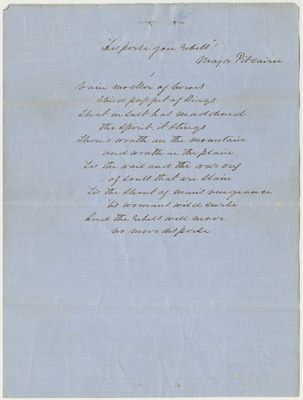 "Disperse you rebels"!
Major Pitcairn
Vain mocker of heroes
blind puppet of Kings
That insult has maddened
the spirit it stings
There's wrath in the mountain
and wrath in the plain
'Tis the wail and the war cry
of souls that are slain
'Tis the shout of man's vengeance
'tis woman's wild curse
And the rebels will never
no more disperse